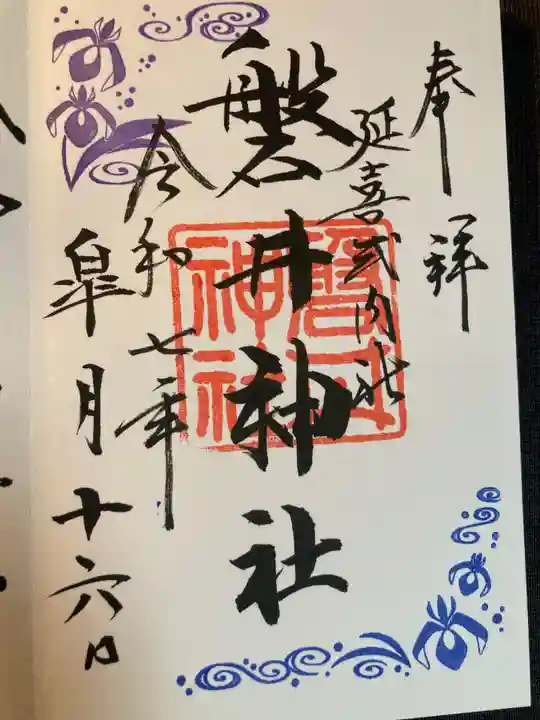 奉祥
延喜式内社
磐井神社
磐井神社
令和七年
皐月十六日